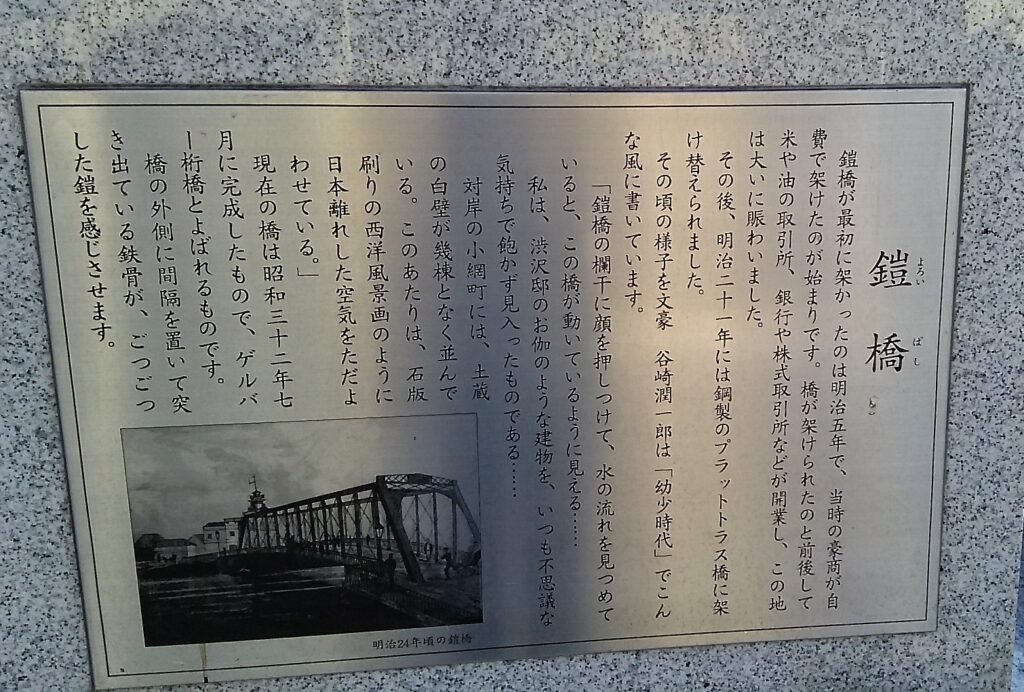 鎧橋
よろい
ばし
鎧橋が最初に架かったのは明治五年で、当時の豪商が自
費で架けたのが始まりです。橋が架けられたのと前後して
米や油の取引所、銀行や株式取引所などが開業し、この地
は大いに賑わいました。
その後、明治二十一年には鋼製のプラットトラス橋に架
け替えられました。
その頃の様子を文豪 谷崎潤一郎は「幼少時代」でこん
な風に書いています。
「鎧橋の欄干に顔を押しつけて、水の流れを見つめて
いると、この橋が動いているように見える……
私は、渋沢邸のお伽のような建物を、いつも不思議な
気持ちで飽かず見入ったものである……
対岸の小網町には、土蔵
の白壁が幾棟となく並んで
いる。このあたりは、石版
刷りの西洋風景画のように
日本離れした空気をただよ
わせている。」
現在の橋は昭和三十二年七
月に完成したもので、ゲルバ
ー桁橋とよばれるものです。
橋の外側に間隔を置いて突
き出ている鉄骨が、ごつごつ
した鎧を感じさせます。
明治24年頃の鎧橋